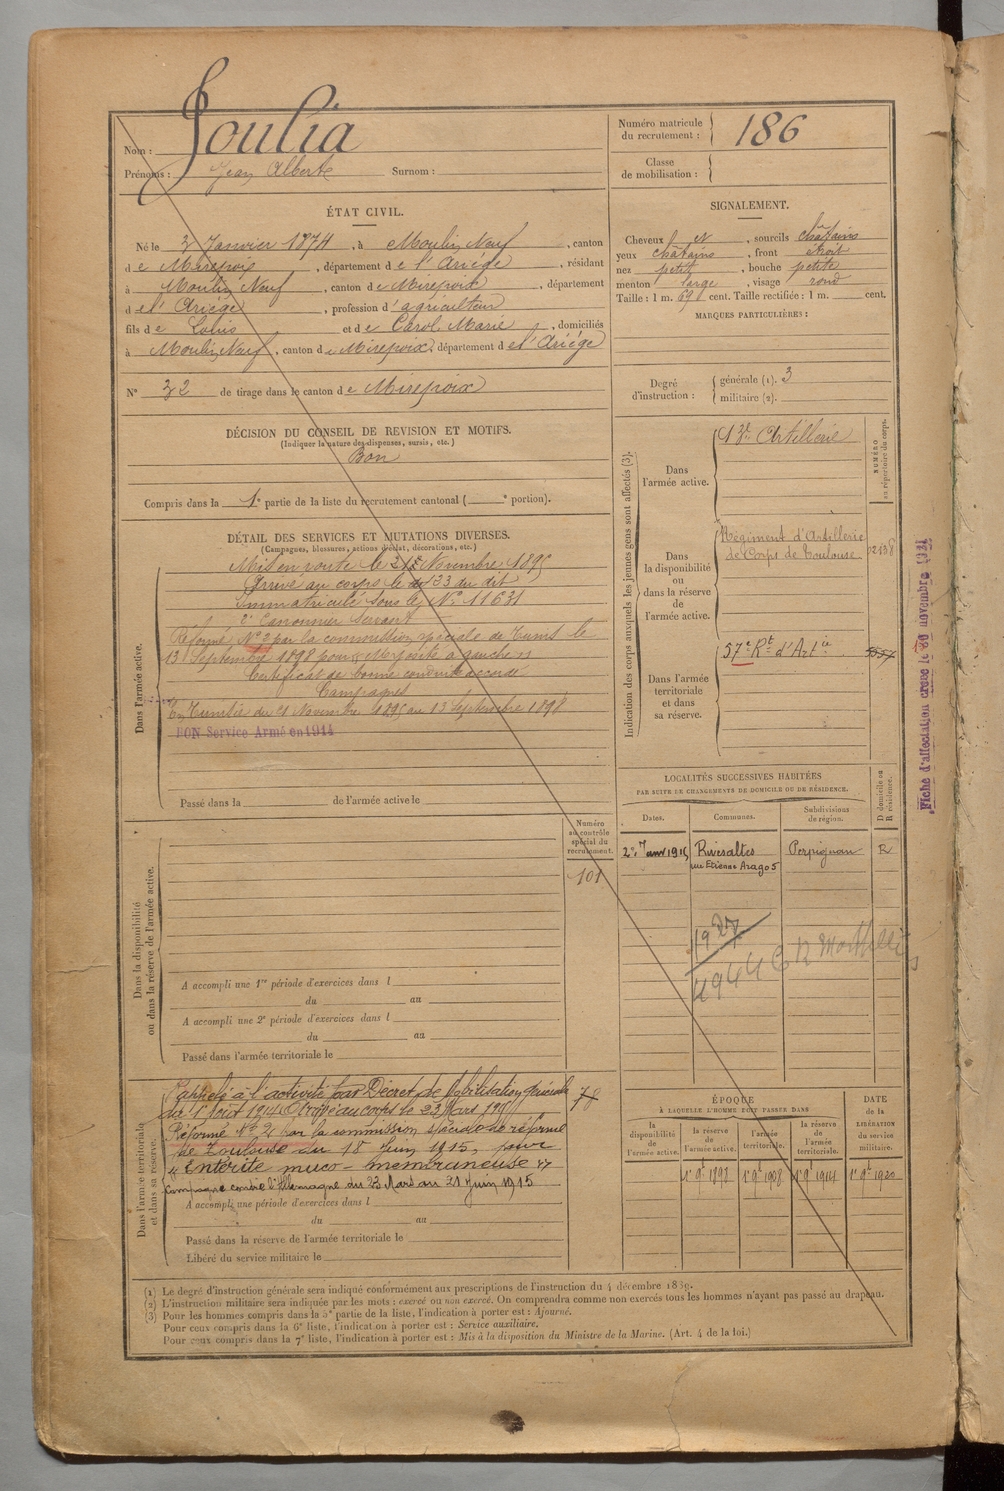 Nom : Joulia
Prénoms : Jean Albert Surnom :
Numéro matricule du recrutement : 186
Classe de mobilisation :
ÉTAT CIVIL.
Né le 3 Janvier 1874, à Moulin Neuf, canton
de Mirepoix, département de l'Ariége, résidant
à Moulin Neuf, canton de Mirepoix, département
de l'Ariége, profession d'agriculteur
fils de Louis et de Carol Marie, domiciliés
à Moulin Neuf, canton de Mirepoix, département de l'Ariége
N° 32 de tirage dans le canton de Mirepoix
SIGNALEMENT.
Cheveux et, sourcils châtains
yeux châtains, front étroit
nez petit, bouche petite
menton large, visage rond
Taille : 1 m. 69 cent. Taille rectifiée : 1 m. cent.
MARQUES PARTICULIÈRES :
Degré d'instruction : générale (1). 3
militaire (2).
DÉCISION DU CONSEIL DE REVISION ET MOTIFS.
(Indiquer la nature des dispenses, sursis, etc.)
Bon
Compris dans la 1e partie de la liste du recrutement cantonal ( e portion).
DÉTAIL DES SERVICES ET MUTATIONS DIVERSES.
(Campagnes, blessures, actions d'éclat, décorations, etc.)
Dans l'armée active.
Mis en route le Novembre 1895
Arrivé au corps le 23 du dit
Immatriculé sous le No 11631
2e Canonnier servant
Réformé No 2 par la commission spéciale de Tunis le
13 Septembre 1898 pour
Certificat de bonne conduite accordé
Campagnes
En Tunisie du 21 Novembre 1895 au 13 Septembre 1898
BON Service Armé en 1914
Passé dans la de l'armée active le
Indication des corps auxquels les jeunes gens sont affectés (3).
NUMÉRO au répertoire du corps.
Dans l'armée active. 13e Artillerie
Dans la disponibilité ou dans la réserve de l'armée active. Régiment d'Artillerie
de Corps de Toulouse
Dans l'armée territoriale et dans sa réserve. 57e Rt d'Artie
Fiche d'affectation créée le 30 novembre 1931
LOCALITÉS SUCCESSIVES HABITÉES
PAR SUITE DE CHANGEMENTS DE DOMICILE OU DE RÉSIDENCE.
Dates. Communes. Subdivisions de région. D domicile ou R résidence.
Janv 1915 Rivesaltes Perpignan R
rue Etienne Arago 5
Dans la disponibilité ou dans la réserve de l'armée active.
Numéro au contrôle spécial du recrutement.
101
A accompli une 1re période d'exercices dans l
du au
A accompli une 2e période d'exercices dans l
du au
Passé dans l'armée territoriale le
Dans l'armée territoriale et dans sa réserve.
Rappelé à l'activité par Décret de Mobilisation générale 78
du 1er Août 1914. Arrivé au corps le 23 Mars 1915
Réformé No 2 par la commission spéciale de réforme
de Toulouse du 18 Juin 1915, pour
"Entérite muco-membraneuse"
Campagne contre l'Allemagne du 23 Mars au 21 Juin 1915
A accompli une période d'exercices dans l
du au
Passé dans la réserve de l'armée territoriale le
Libéré du service militaire le
ÉPOQUE
À LAQUELLE L'HOMME DOIT PASSER DANS
la disponibilité de l'armée active. la réserve de l'armée active. l'armée territoriale. la réserve de l'armée territoriale. DATE de la LIBÉRATION du service militaire.
(1) Le degré d'instruction générale sera indiqué conformément aux prescriptions de l'instruction du 4 décembre 1889.
(2) L'instruction militaire sera indiquée par les mots : exercé ou non exercé. On comprendra comme non exercés tous les hommes n'ayant pas passé au drapeau.
(3) Pour les hommes compris dans la 5e partie de la liste, l'indication à porter est : Ajourné.
Pour ceux compris dans la 6e liste, l'indication à porter est : Service auxiliaire.
Pour ceux compris dans la 7e liste, l'indication à porter est : Mis à la disposition du Ministre de la Marine. (Art. 4 de la loi.)